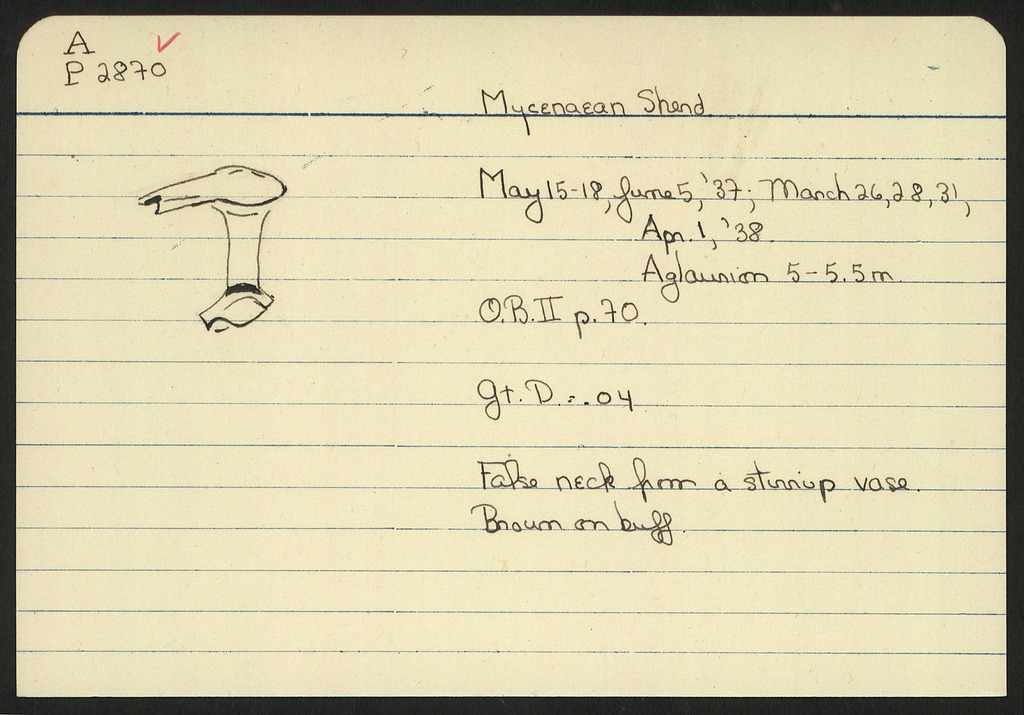 A
P 2870
Mycenaean Sherd.
May 15-18, June 5, '37; March 26, 28, 31,
Apr. 1, '38.
Aglaurion 5-5.5m
O.B. II p. 70.
Gt. D. = .04
False neck from a stirrup vase.
Brown on buff.